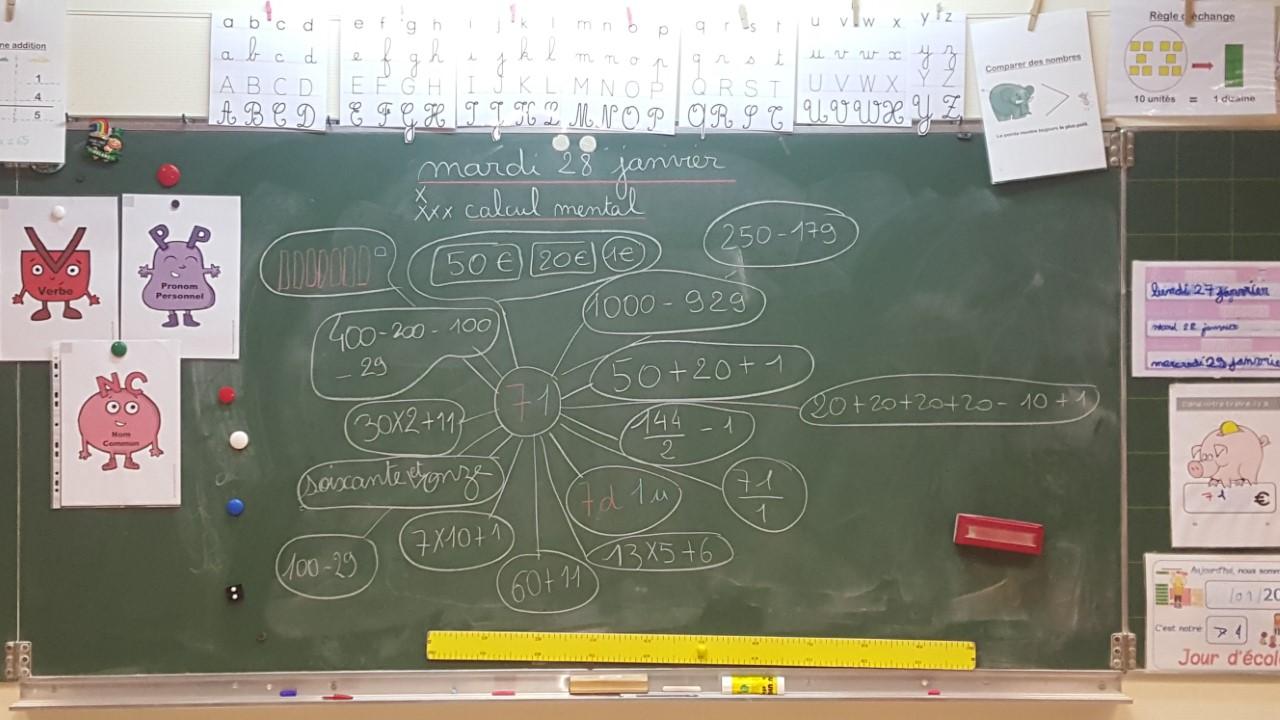 ne addition
1
4
5
a b c d
a b c d
A B C D
A B C D
e f g h
e f g h
E F G H
E F G H
i j k l
i j k l
I J K L
I J K L
m n o p
m n o p
M N O P
M N O P
q r s t
q r s t
Q R S T
Q R S T
u v w x
u v w x
U V W X
U V W X
y z
y z
Y Z
Y Z
Comparer des nombres
>
La pointe montre toujours le plus petit.
Règle d'échange
10 unités = 1 dizaine
mardi 28 janvier
x
xxx calcul mental
Verbe
PP
Pronom
Personnel
NC
Nom
Commun
50 € 20€ 1€
250-179
1000-929
400-200-100
-29
50+20+1
71
20+20+20+20-10+1
30x2+11
144
2
-1
soixante et onze
7d 1u
71
1
100-29
7x10+1
60+11
13x5+6
lundi 27 janvier
mardi 28 janvier
mercredi 29 janvier
71 €
Aujourd'hui, nous somm
C'est notre
71
Jour d'écol